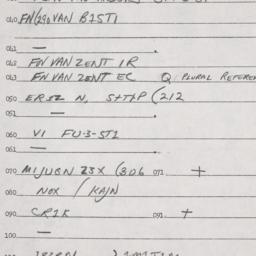 040 FN/290 VAN B1ST1
041 —
042 FN VAN ZENT IR
043 FN VAN ZENT EC Q PLURAL REFERE
050 ERSZ N, S++XP (212
051 —
060 VI FU-3-ST1
061 —
070 MIJUBN 23X (306 071 +
080 NOX / KAJN
090 CR1K 091 +
100 —